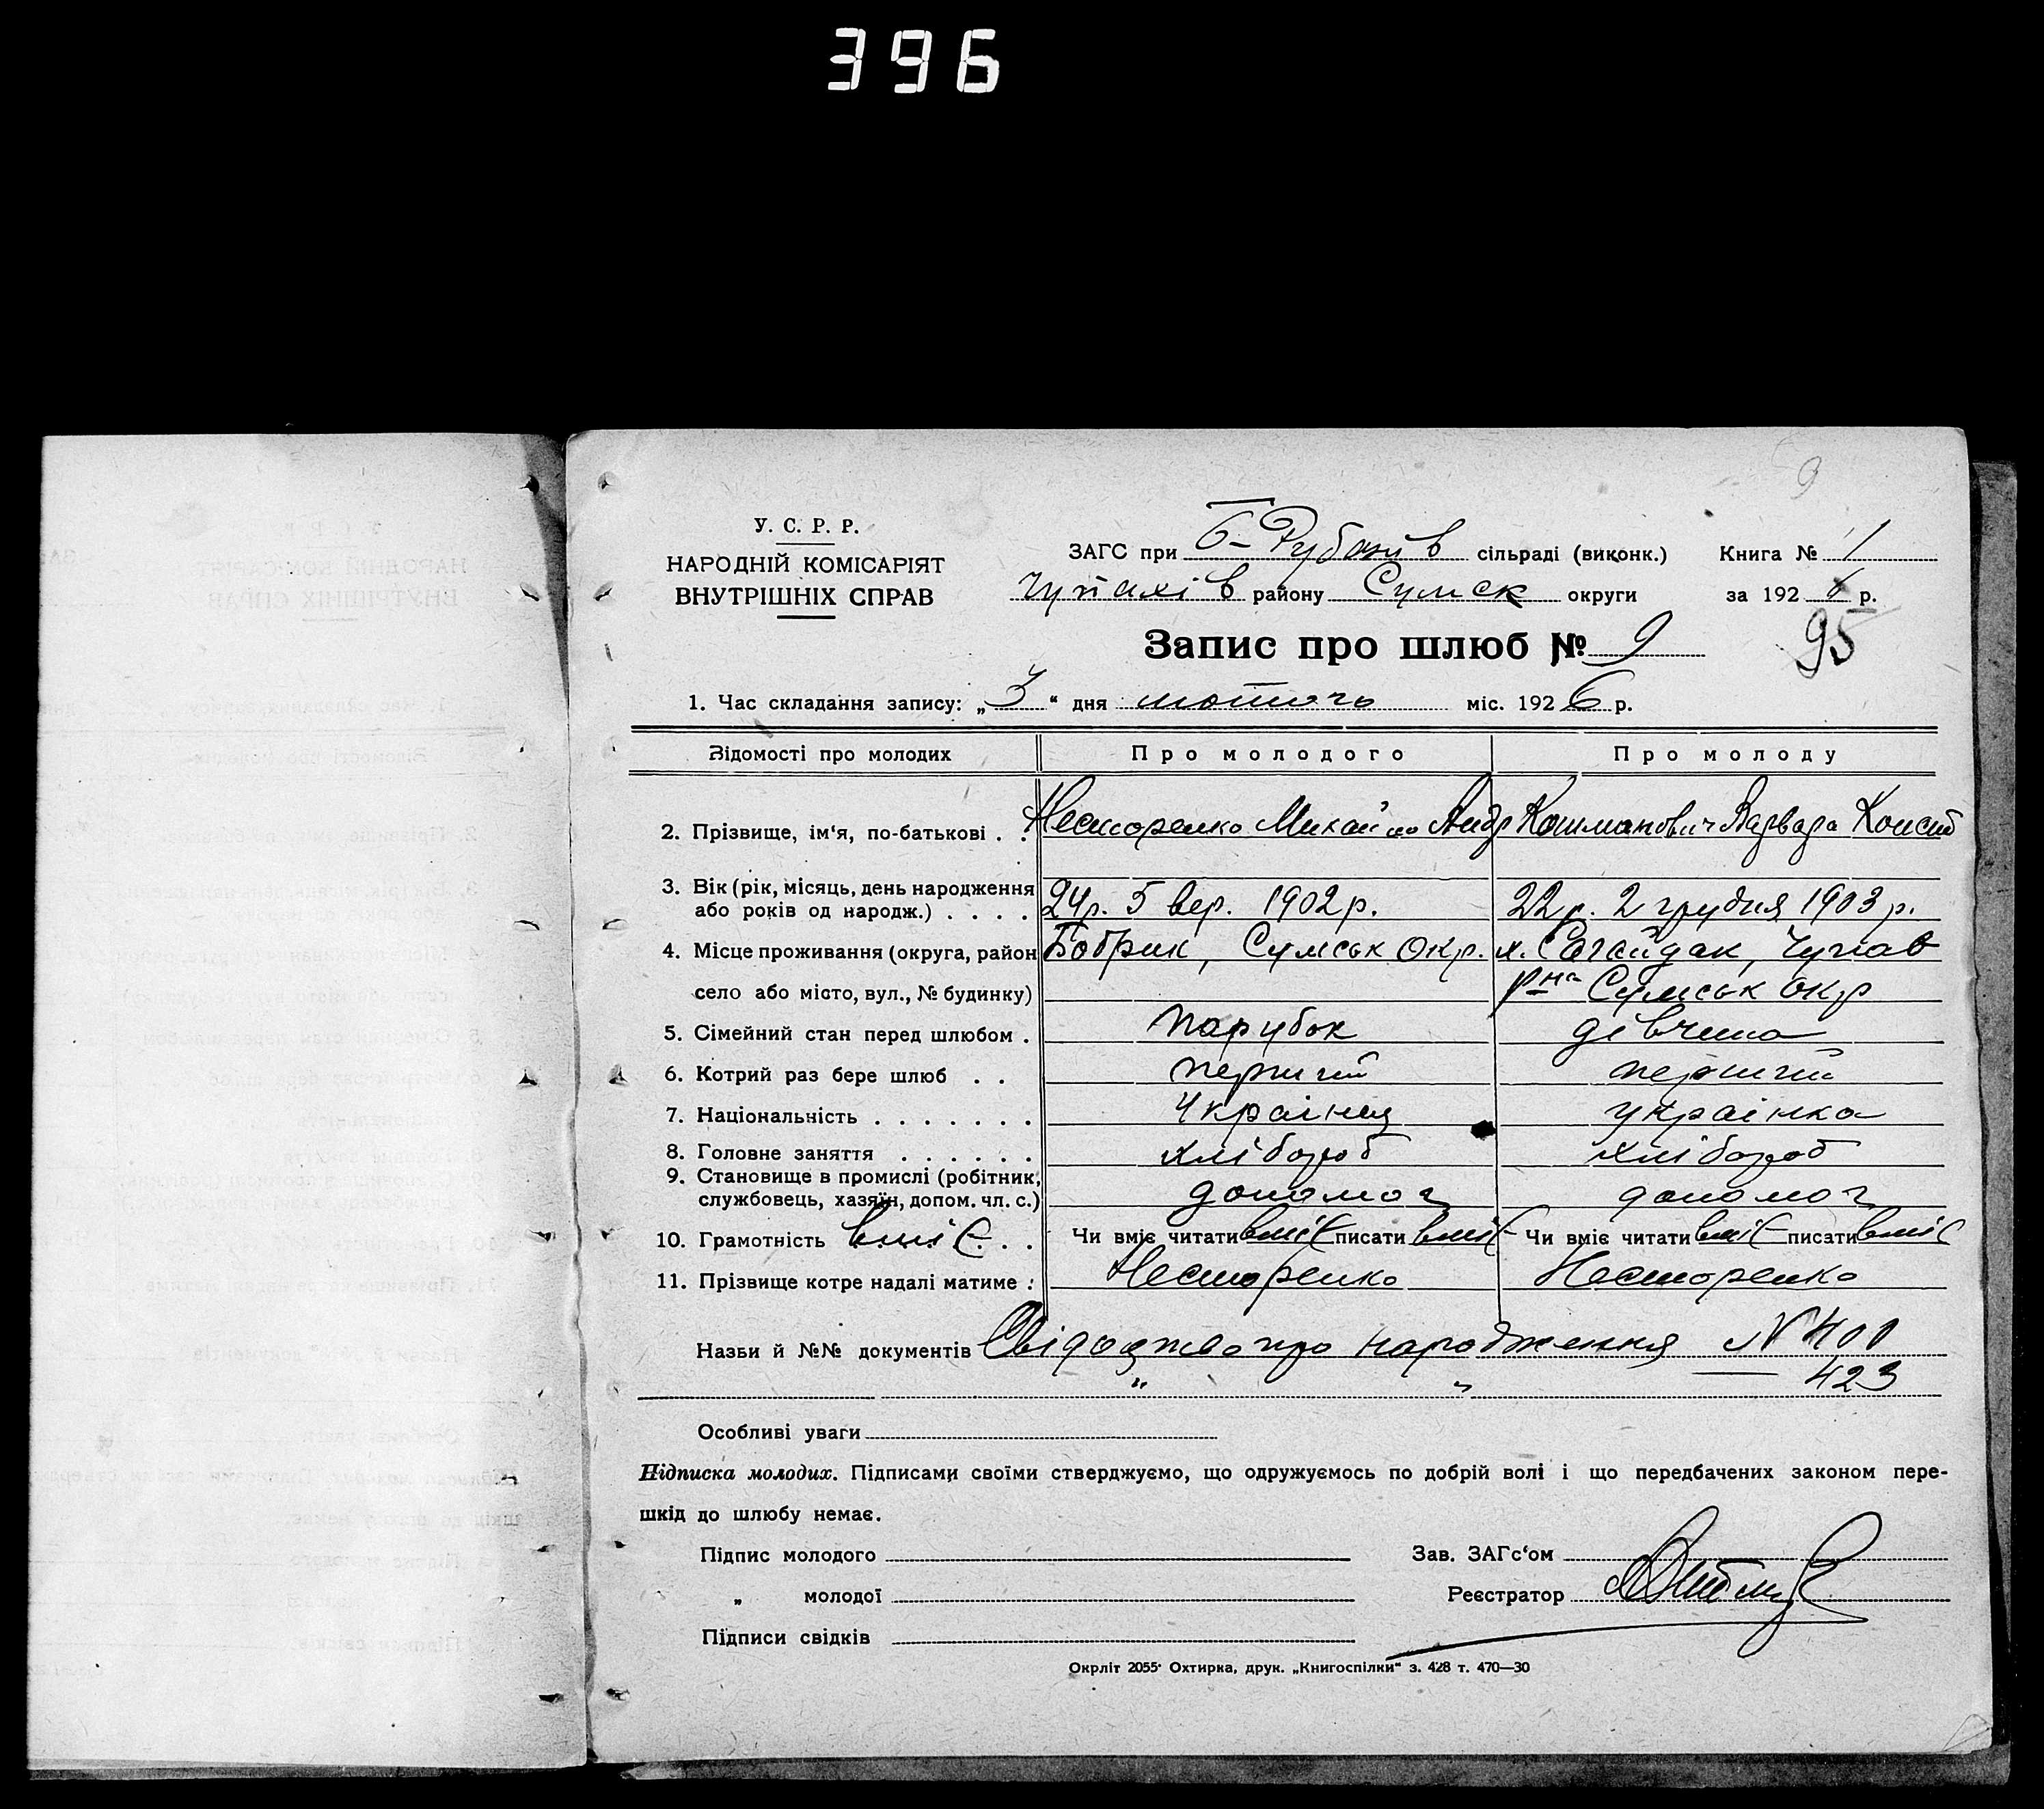 396
9
У. С. Р. Р.
НАРОДНІЙ КОМІСАРІЯТ
ВНУТРІШНІХ СПРАВ
ЗАГС при Б-Рубанів сільраді (виконк.) Книга № 1
Чупахів району Сумськ округи за 1926 р.
Запис про шлюб № 9
95
1. Час складання запису: „3“ дня лютого міс. 1926 р.
Відомості про молодих Про молодого Про молоду
2. Прізвище, ім‘я, по-батькові . . Несторенко Михайло Андр Кошманович Варвара Конст
3. Вік (рік, місяць, день народження
або років од народж.) . . . . 24р. 5 вер. 1902 р. 22 р. 2 грудня 1903 р.
4. Місце проживання (округа, район Бобрик, Сумськ Окр. х. Сагайдак, Чупав
село або місто, вул., № будинку) р-на Сумськ окр
5. Сімейний стан перед шлюбом . парубок дівчина
6. Котрий раз бере шлюб . . перший перший
7. Національність . . . . . . . Українец українка
8. Головне заняття . . . . . . хлібороб хлібороб
9. Становище в промислі (робітник,
службовець, хазяїн, допом. чл. с.) допомог допомог
10. Грамотність вміє . . Чи вміє читати вміє писати вміє Чи вміє читати вміє писати вміє
11. Прізвище котре надалі матиме : Несторенко Несторенко
Назви й №№ документів Свідоцтво про народження N 401
„ „ — 423
Особливі уваги
Підписка молодих. Підписами своїми стверджуємо, що одружуємось по добрій волі і що передбачених законом пере-
шкід до шлюбу немає.
Підпис молодого Зав. ЗАГс‘ом
„ молодої Реєстратор
Підписи свідків
Окрліт 2055 Охтирка, друк. „Книгоспілки“ з. 428 т. 470—30